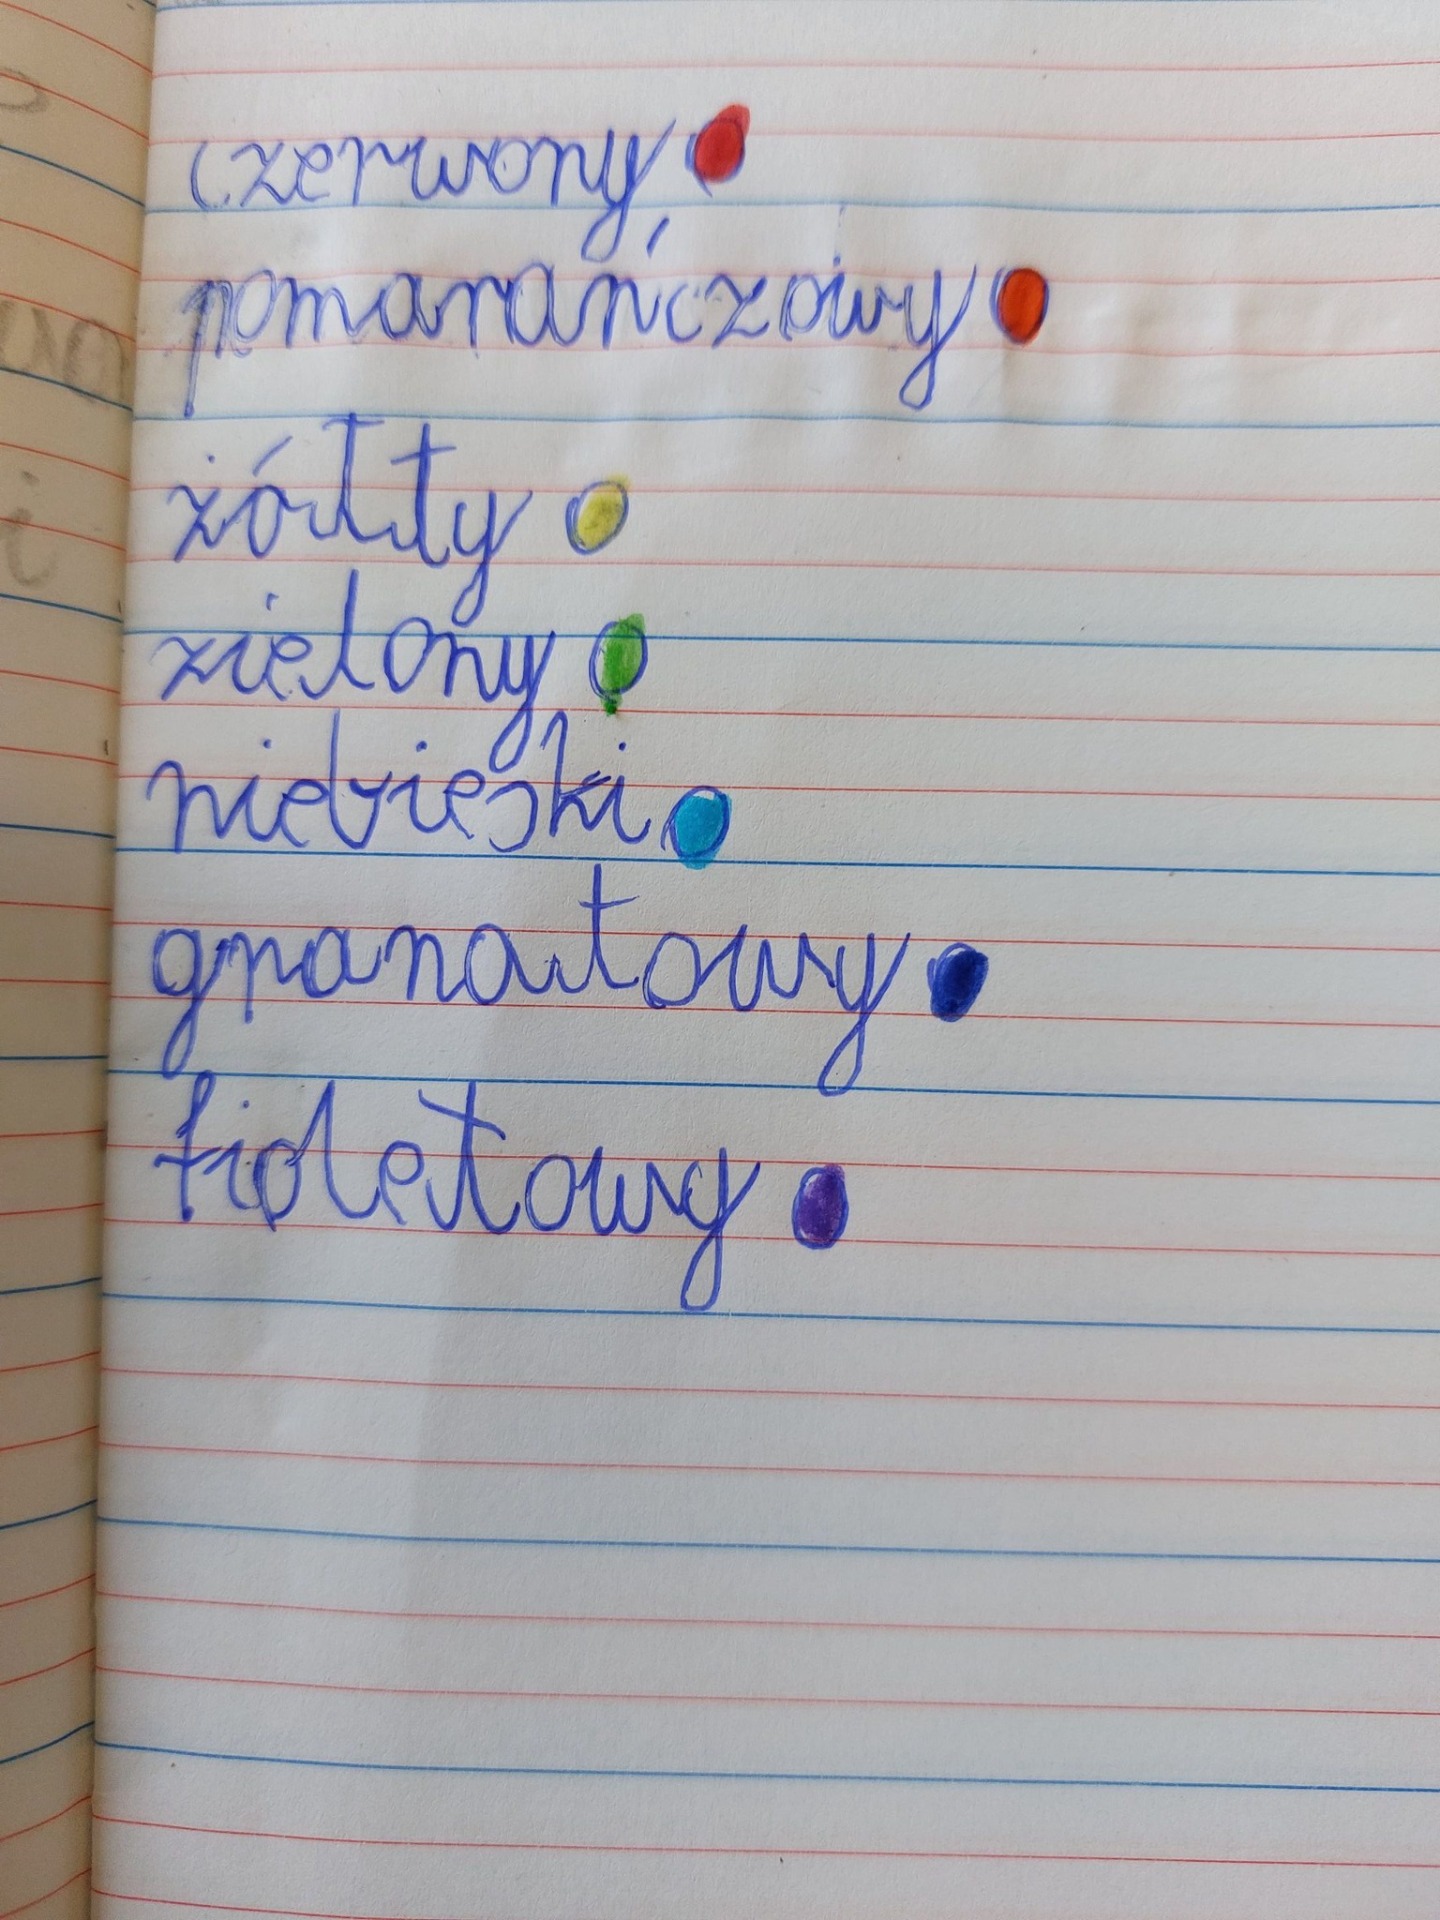 czerwony
pomarańczowy
żółty
zielony
niebieski
granatowy
fioletowy